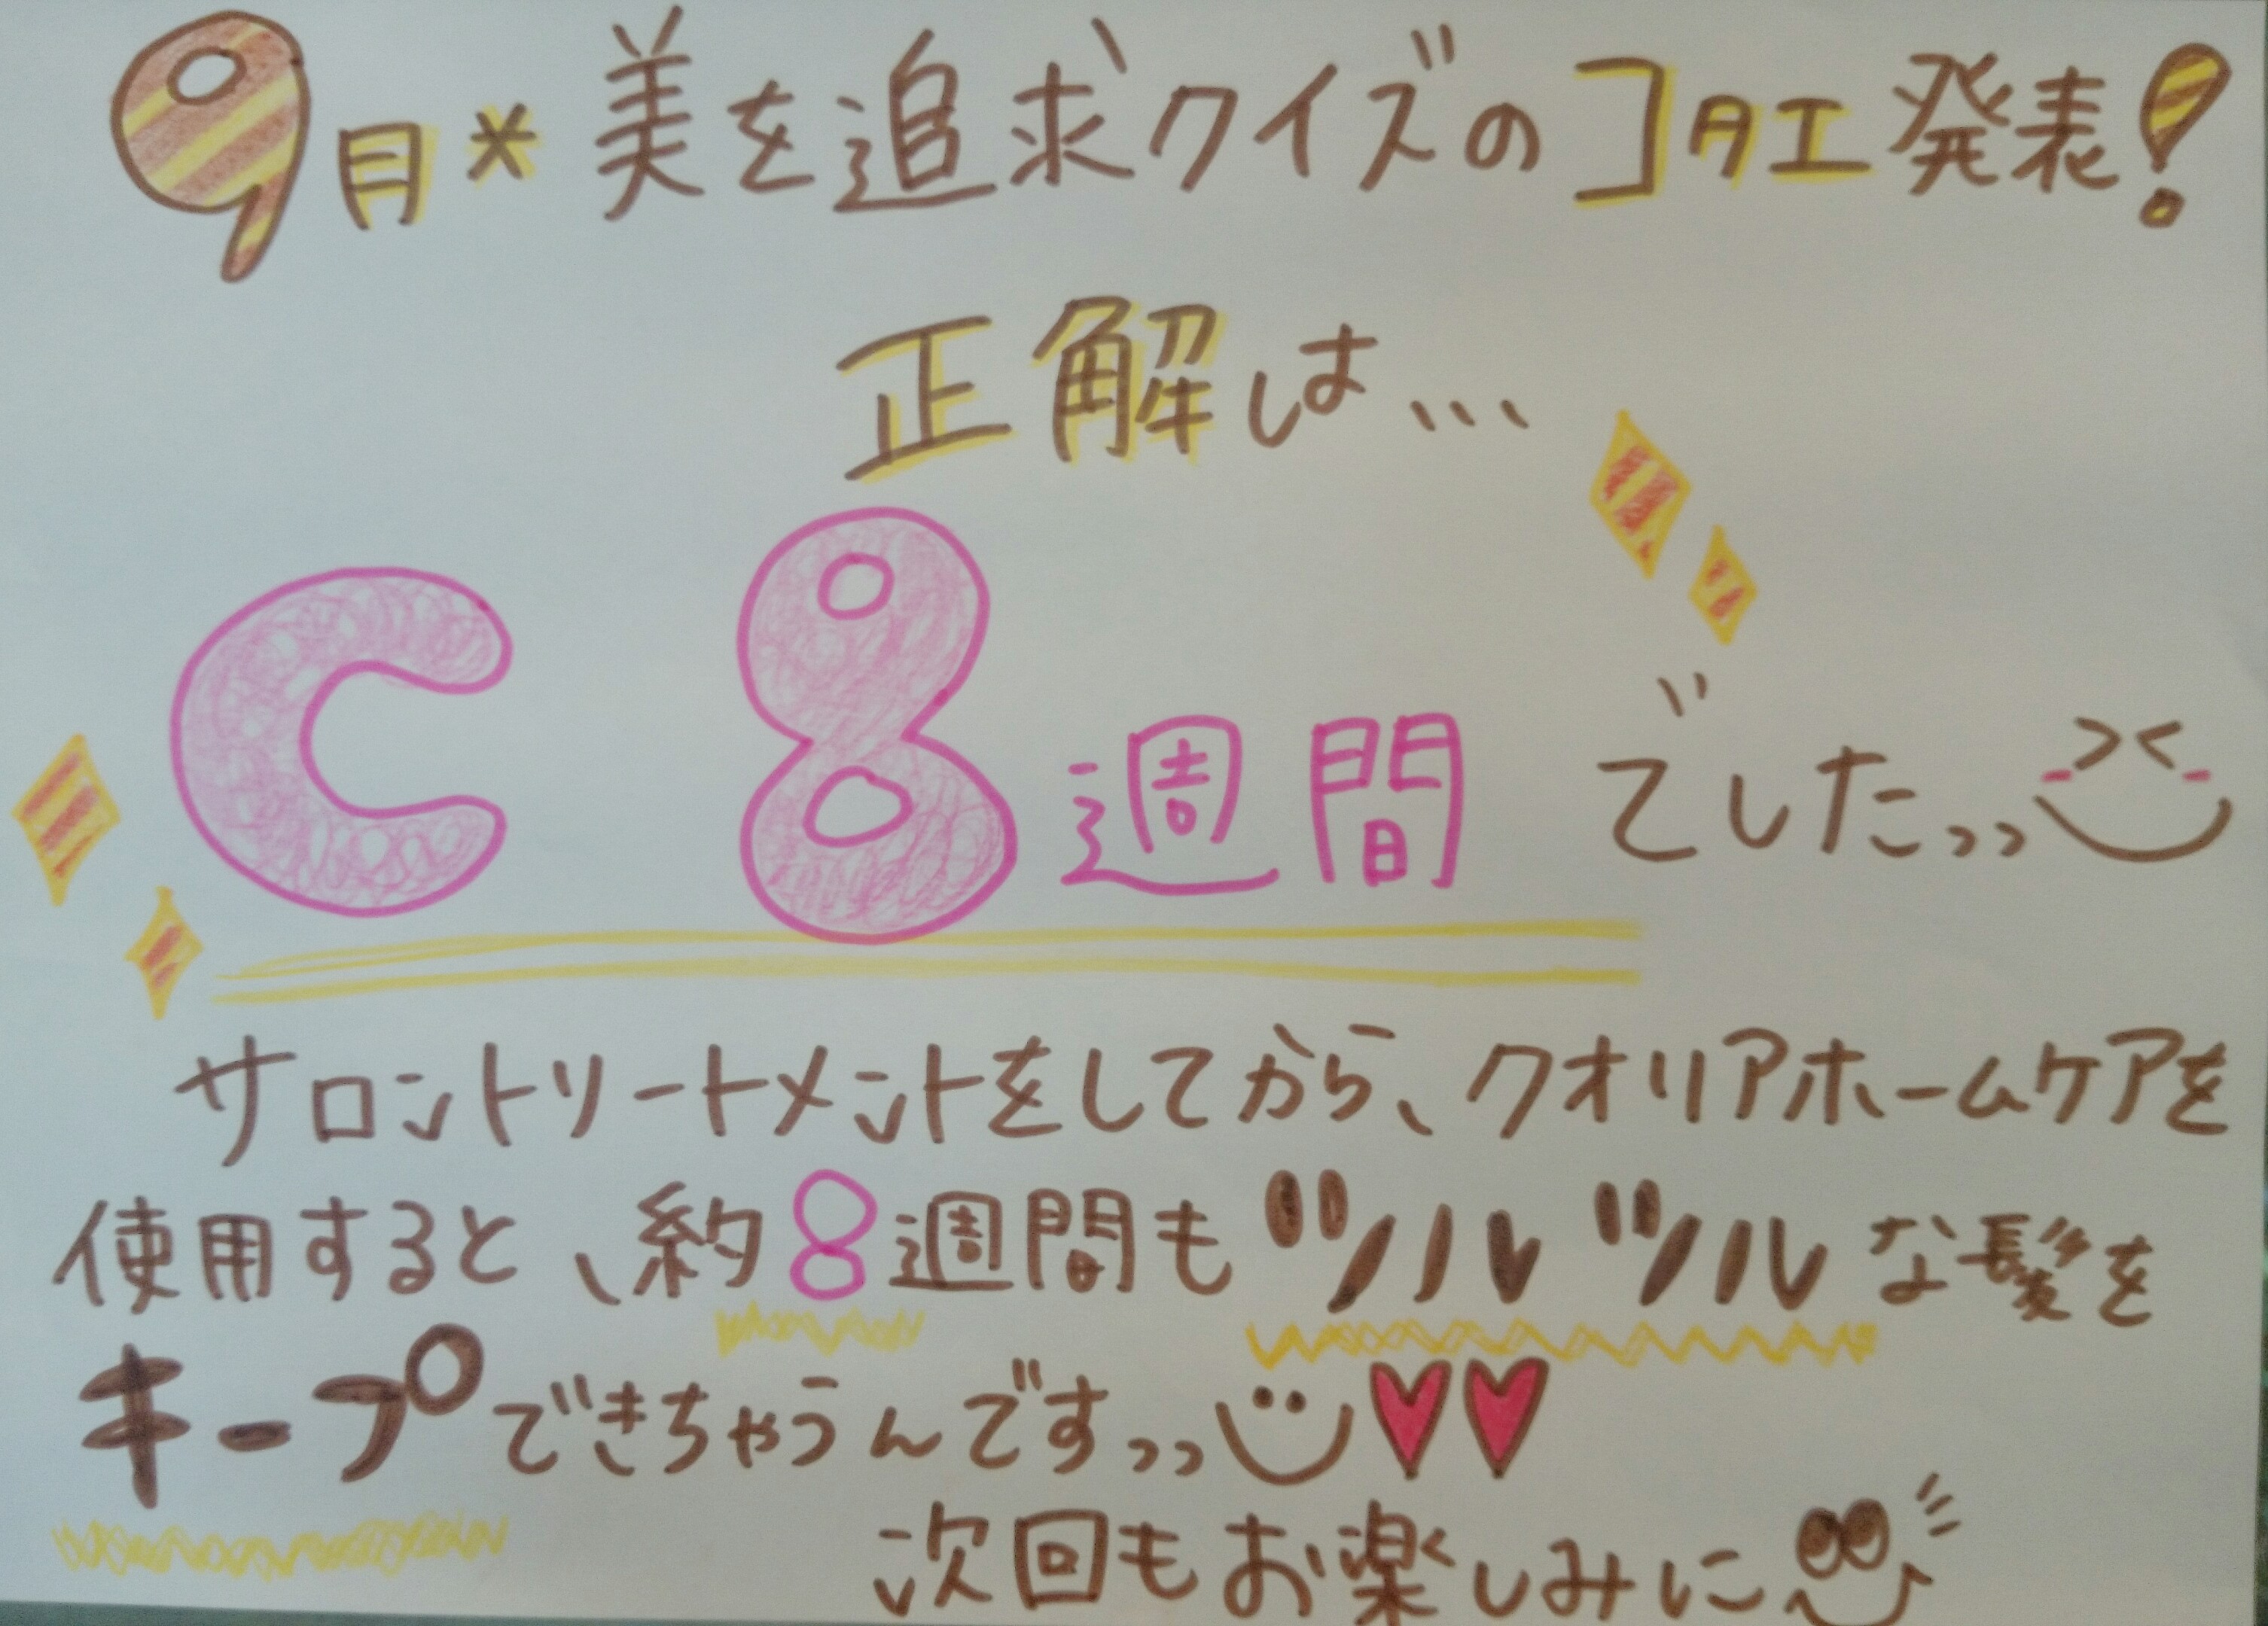 9月*美を追求クイズのコタエ発表!
正解は...
C 8週間 でしたっっ
サロントリートメントをしてから、クオリアホームケアを
使用すると、約8週間もツルツルな髪を
キープできちゃうんですっっ
次回もお楽しみに